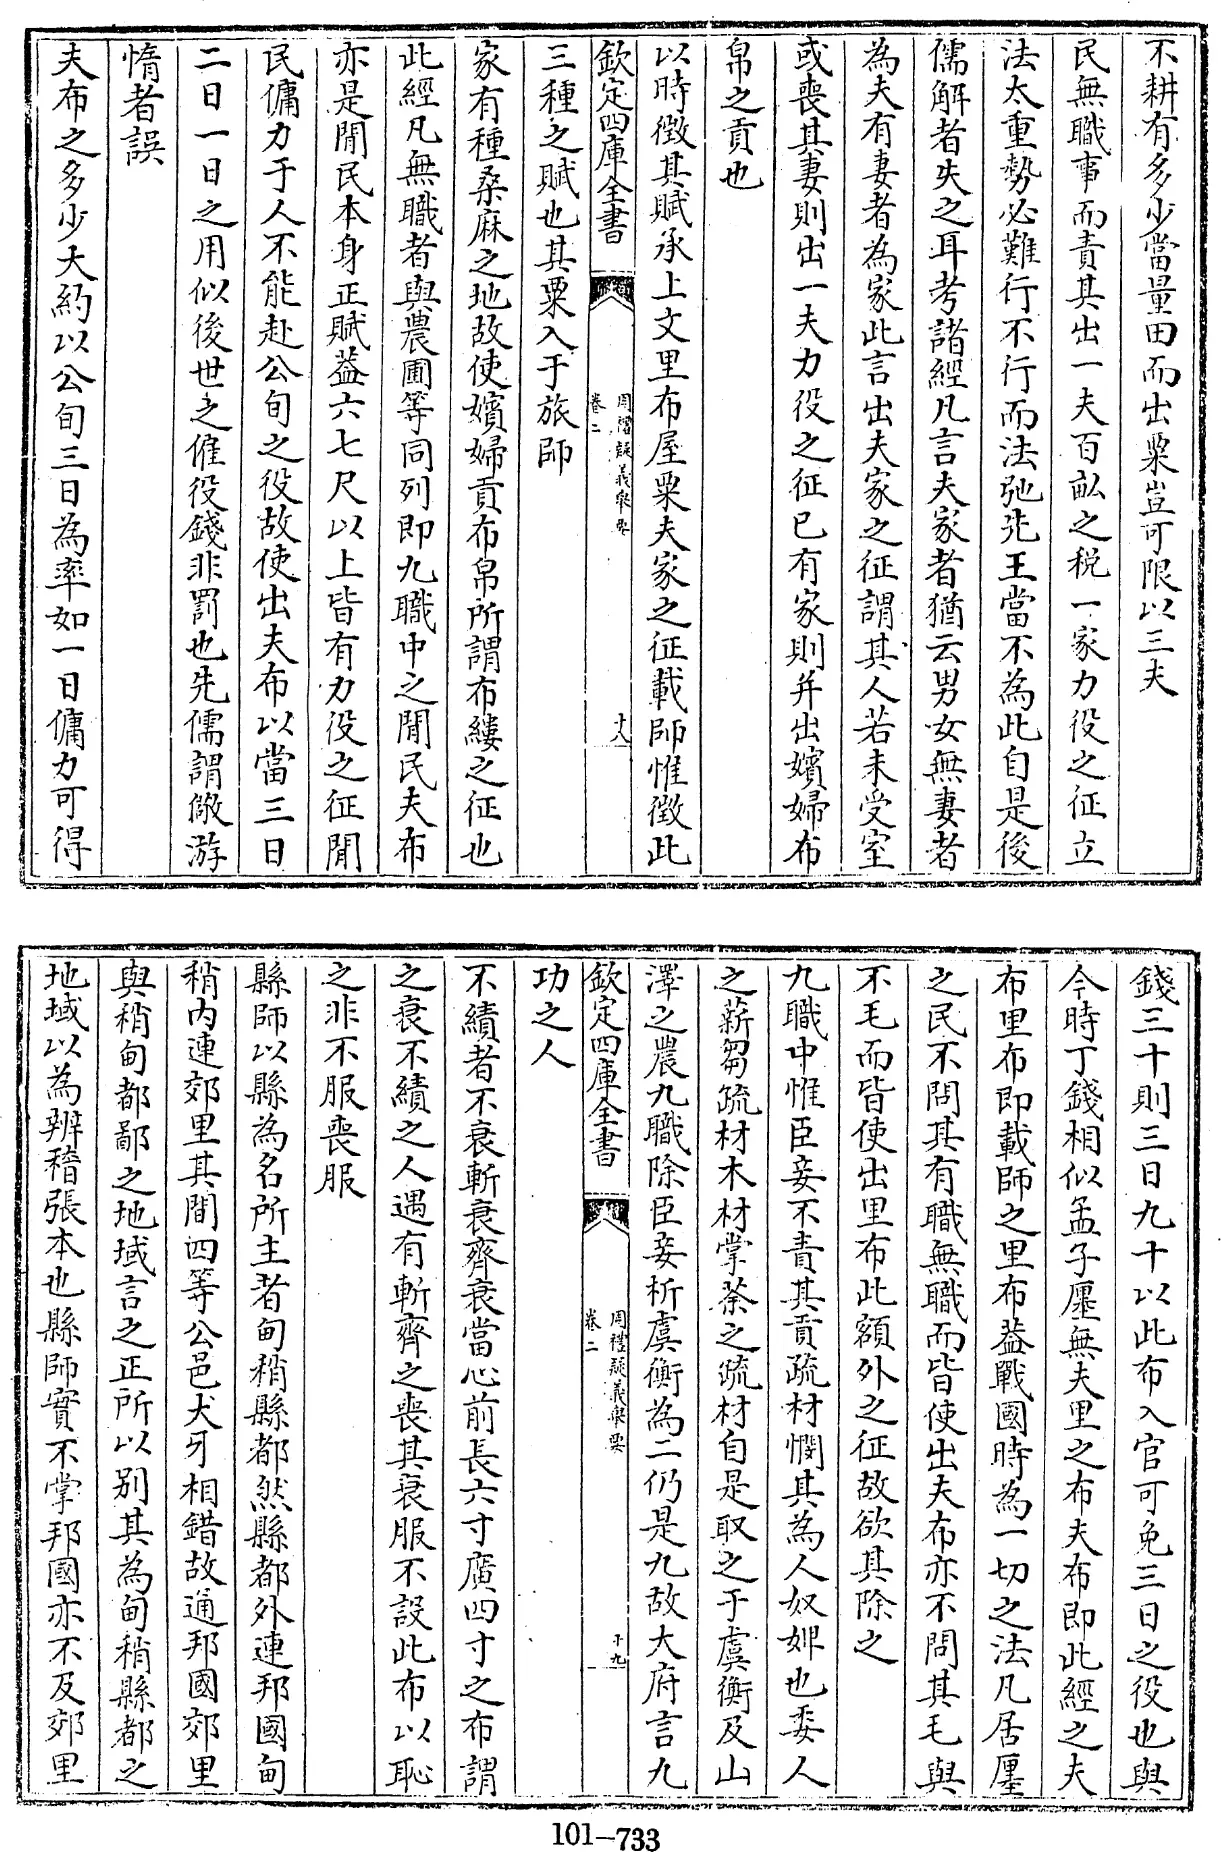 不耕有多少當量田而出粟豈可限以三夫
民無職事而責其出一夫百畝之税一家力役之征立
法太重勢必難行不行而法弛先王當不為此自是後
儒解者失之耳考諸經凡言夫家者猶云男女無妻者
為夫有妻者為家此言出夫家之征謂其人若未受室
或喪其妻則出一夫力役之征已有家則并出嬪婦布
帛之貢也
以時徴其賦承上文里布屋粟夫家之征載師惟徴此
欽定四庫全書
周禮疑義舉要
卷二
十八
三種之賦也其粟入于旅師
家有種桑麻之地故使嬪婦貢布帛所謂布縷之征也
此經凡無職者與農圃等同列即九職中之閒民夫布
亦是閒民本身正賦葢六七尺以上皆有力役之征閒
民傭力于人不能赴公旬之役故使出夫布以當三日
二日一日之用似後世之僱役錢非罰也先儒謂儆游
惰者誤
夫布之多少大約以公旬三日為率如一日傭力可得
錢三十則三日九十以此布入官可免三日之役也與
今時丁錢相似孟子廛無夫里之布夫布即此經之夫
布里布即載師之里布葢戰國時為一切之法凡居廛
之民不問其有職無職而皆使出夫布亦不問其毛與
不毛而皆使出里布此額外之征故欲其除之
九職中惟臣妾不責其貢疏材憫其為人奴婢也委人
之薪芻疏材木材掌荼之疏材自是取之于虞衡及山
澤之農九職除臣妾析虞衡為二仍是九故大府言九
欽定四庫全書
周禮疑義舉要
卷二
十九
功之人
不績者不衰斬衰齊衰當心前長六寸廣四寸之布謂
之衰不績之人遇有斬齊之喪其衰服不設此布以恥
之非不服喪服
縣師以縣為名所主者甸稍縣都然縣都外連邦國甸
稍内連郊里其間四等公邑犬牙相錯故通邦國郊里
與稍甸都鄙之地域言之正所以别其為甸稍縣都之
地域以為辨稽張本也縣師實不掌邦國亦不及郊里
101-733